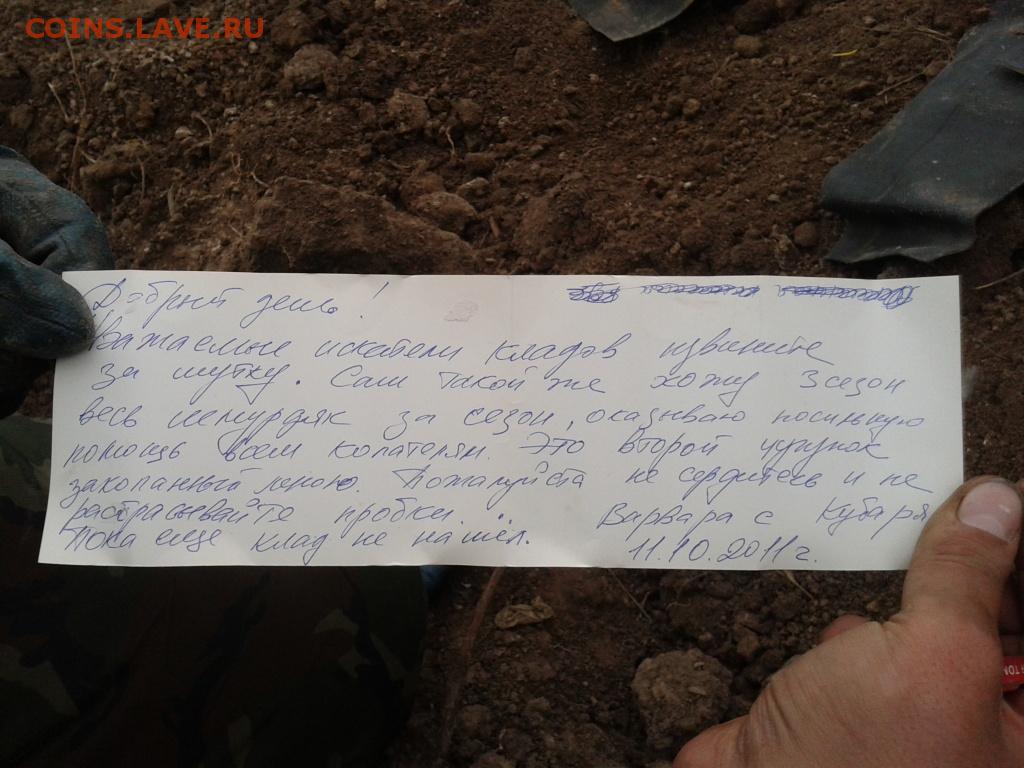 COINS.LAVE.RU
Добрый день!
Уважаемые искатели кладов извините
за шутку. Сам такой же хожу 3 сезон
весь шмурдяк за сезон, оказываю посильную
помощь всем копателям. Это второй чугунок
закопанный мною. Пожалуйста не сердитесь и не
растрасывайте пробки. Варвара с Кубаря
Пока еще клад не нашёл. 11.10.2011 г.